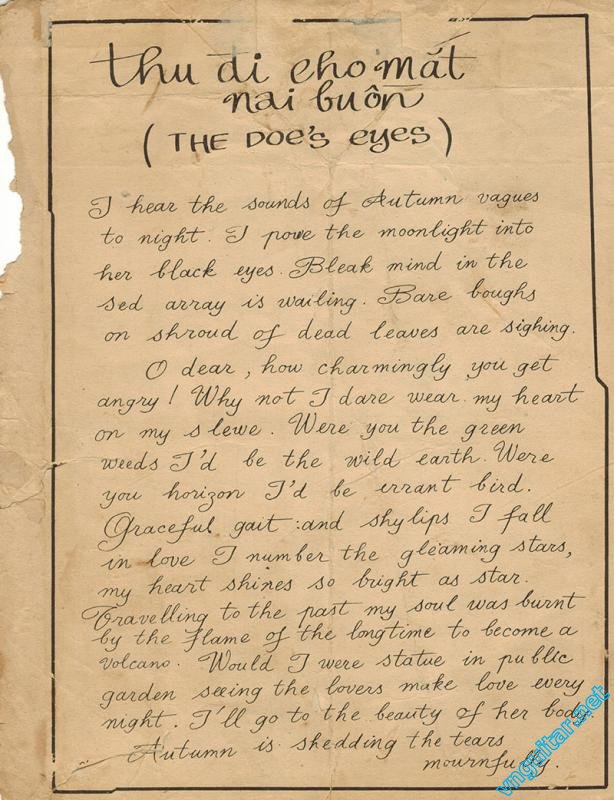 thu đi cho mắt
nai buồn
(THE DOE'S eyes)
I hear the sounds of Autumn vagues
to night. I powe the moonlight into
her black eyes. Bleak mind in the
sed array is wailing. Bare boughs
on shroud of dead leaves are sighing.
O dear, how charmingly you get
angry! Why not I dare wear my heart
on my slewe. Were you the green
weeds I'd be the wild earth. Were
you horizon I'd be errant bird.
Graceful gait and shylips I fall
in love I number the gleaming stars,
my heart shines so bright as star.
Travelling to the past my soul was burnt
by the flame of the longtime to become a
volcano. Would I were statue in public
garden seeing the lovers make love every
night. I'll go to the beauty of her body
Autumn is shedding the tears
mournfully.
vnguitar.net